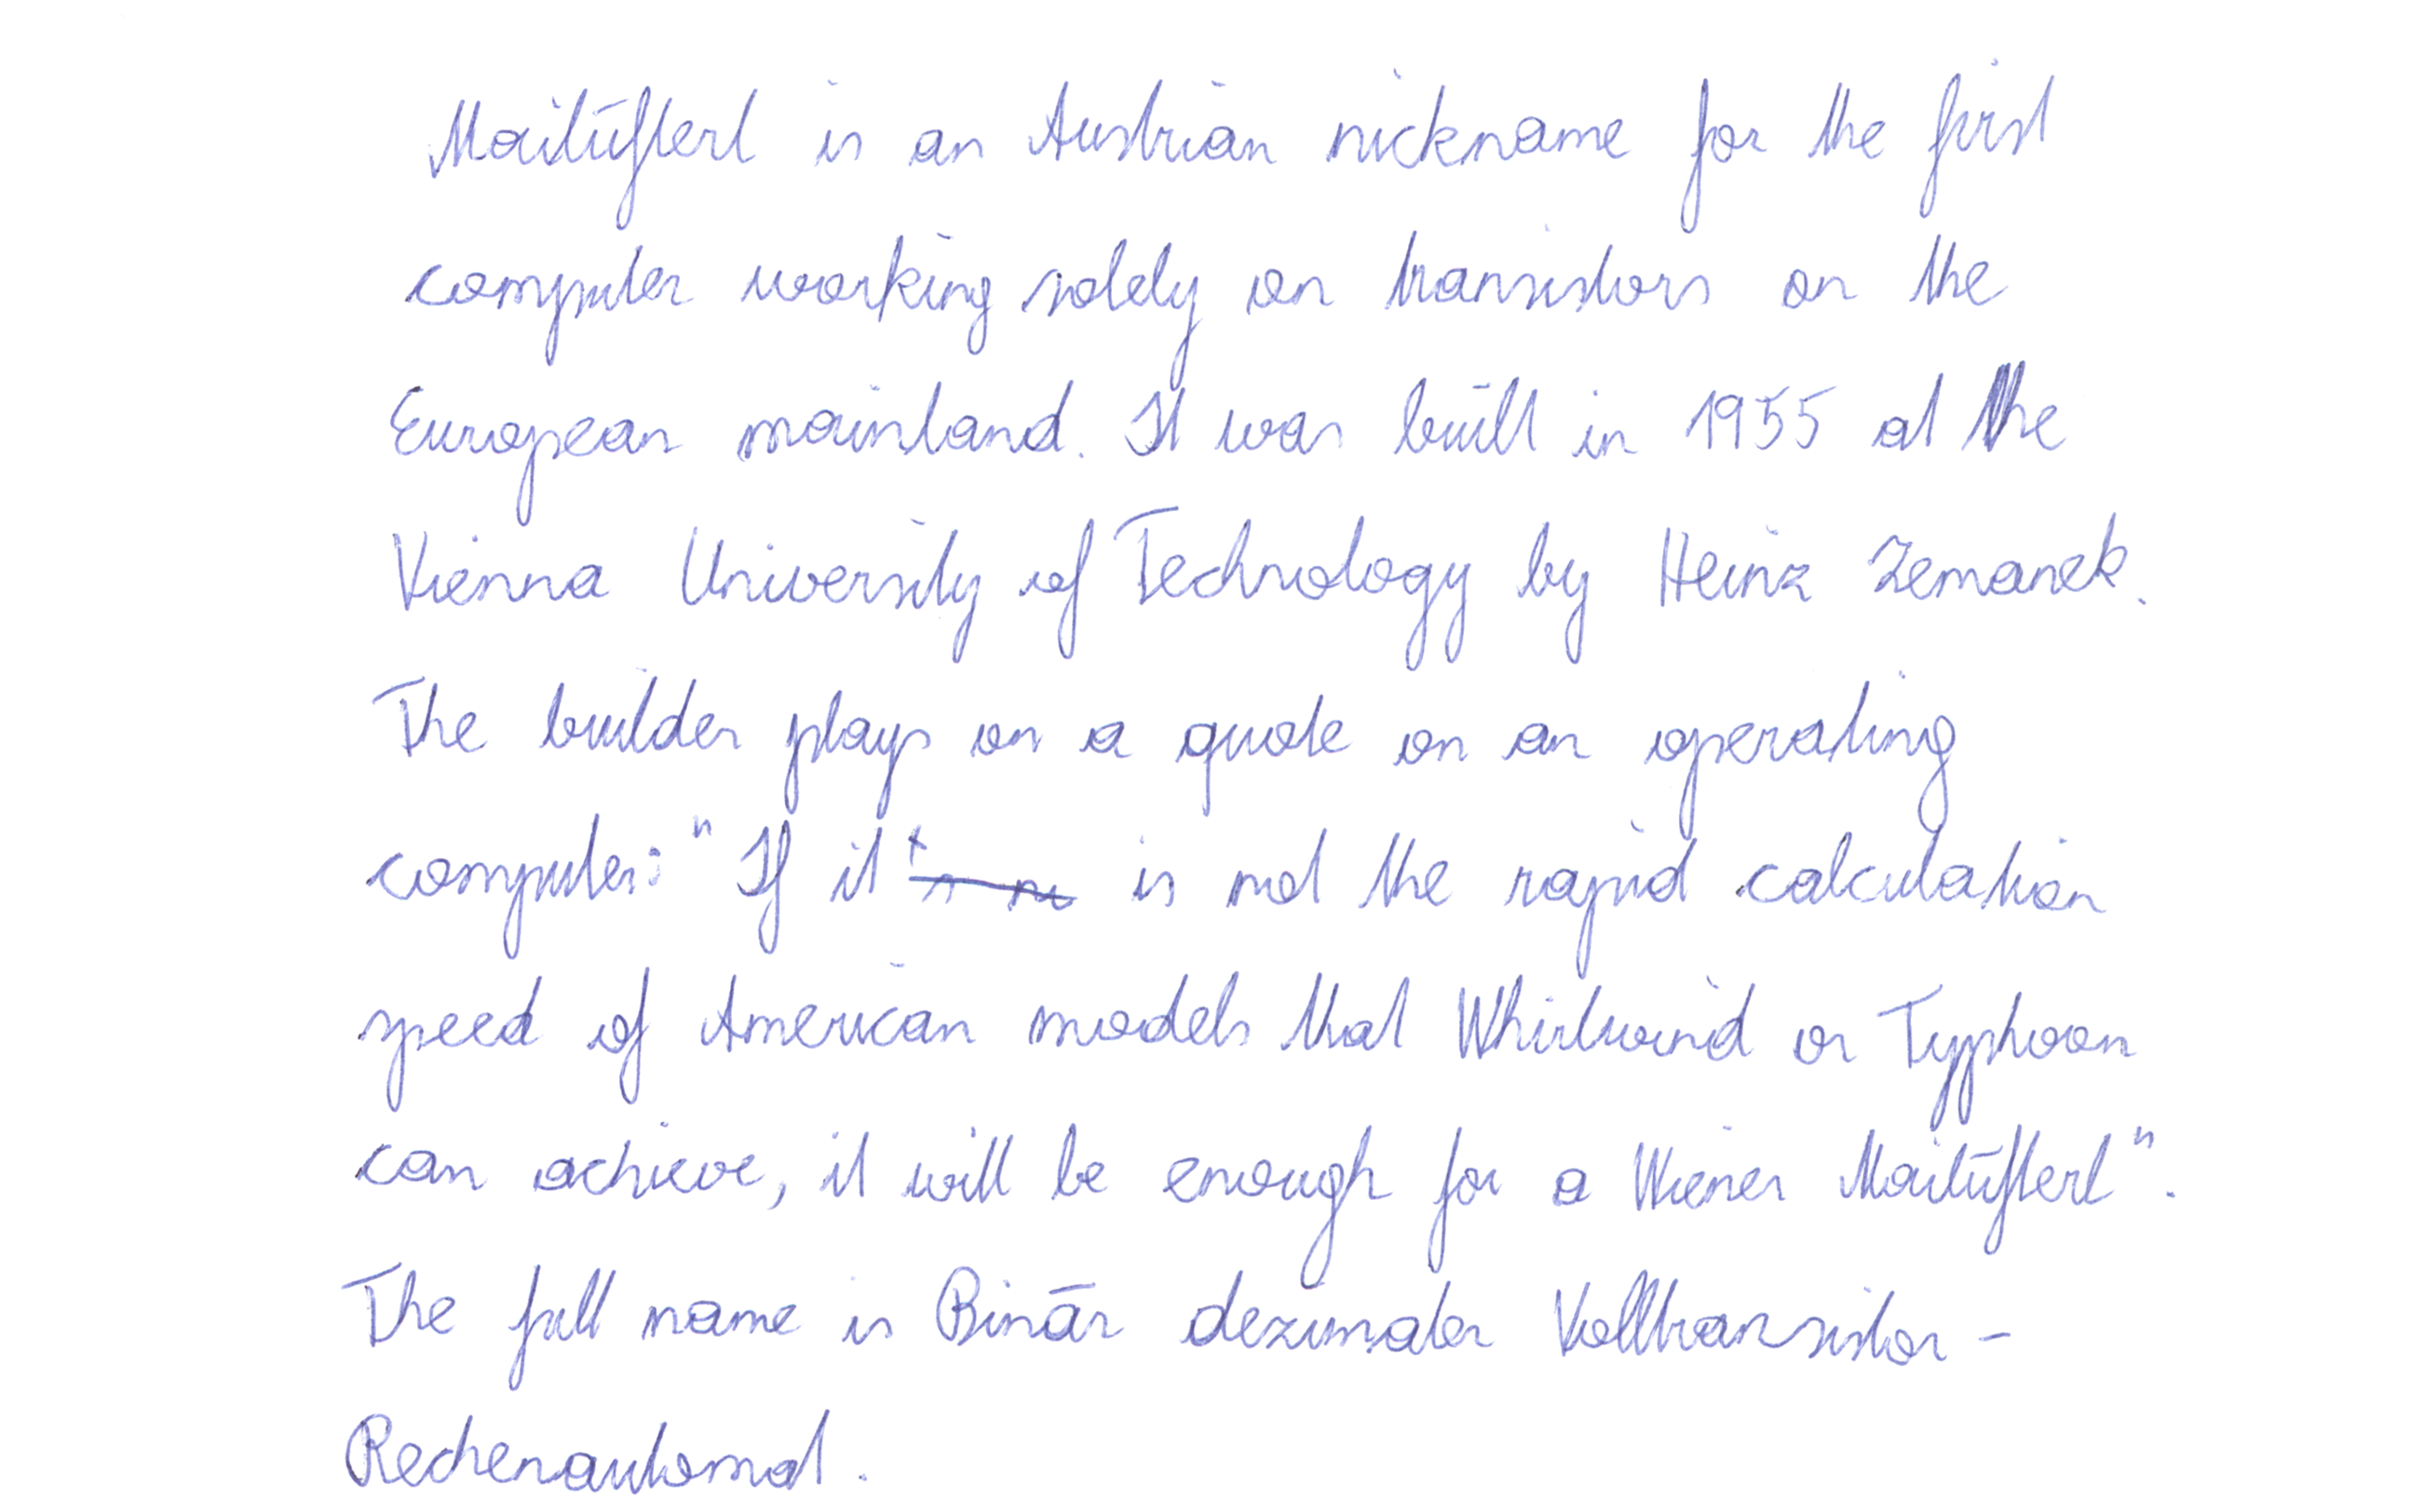 Maitüfterl is an Austrian nickname for the first
computer working solely on transistors on the
European mainland. It was built in 1955 at the
Vienna University of Technology by Heinz Zemanek.
The builder plays on a quote on an operating
computer: "If it is not the rapid calculation
speed of American models that Whirlwind or Typhoon
can achieve, it will be enough for a Wiener Maitüfterl".
The full name is Binär dezimaler Volltransistor-
Rechenautomat.